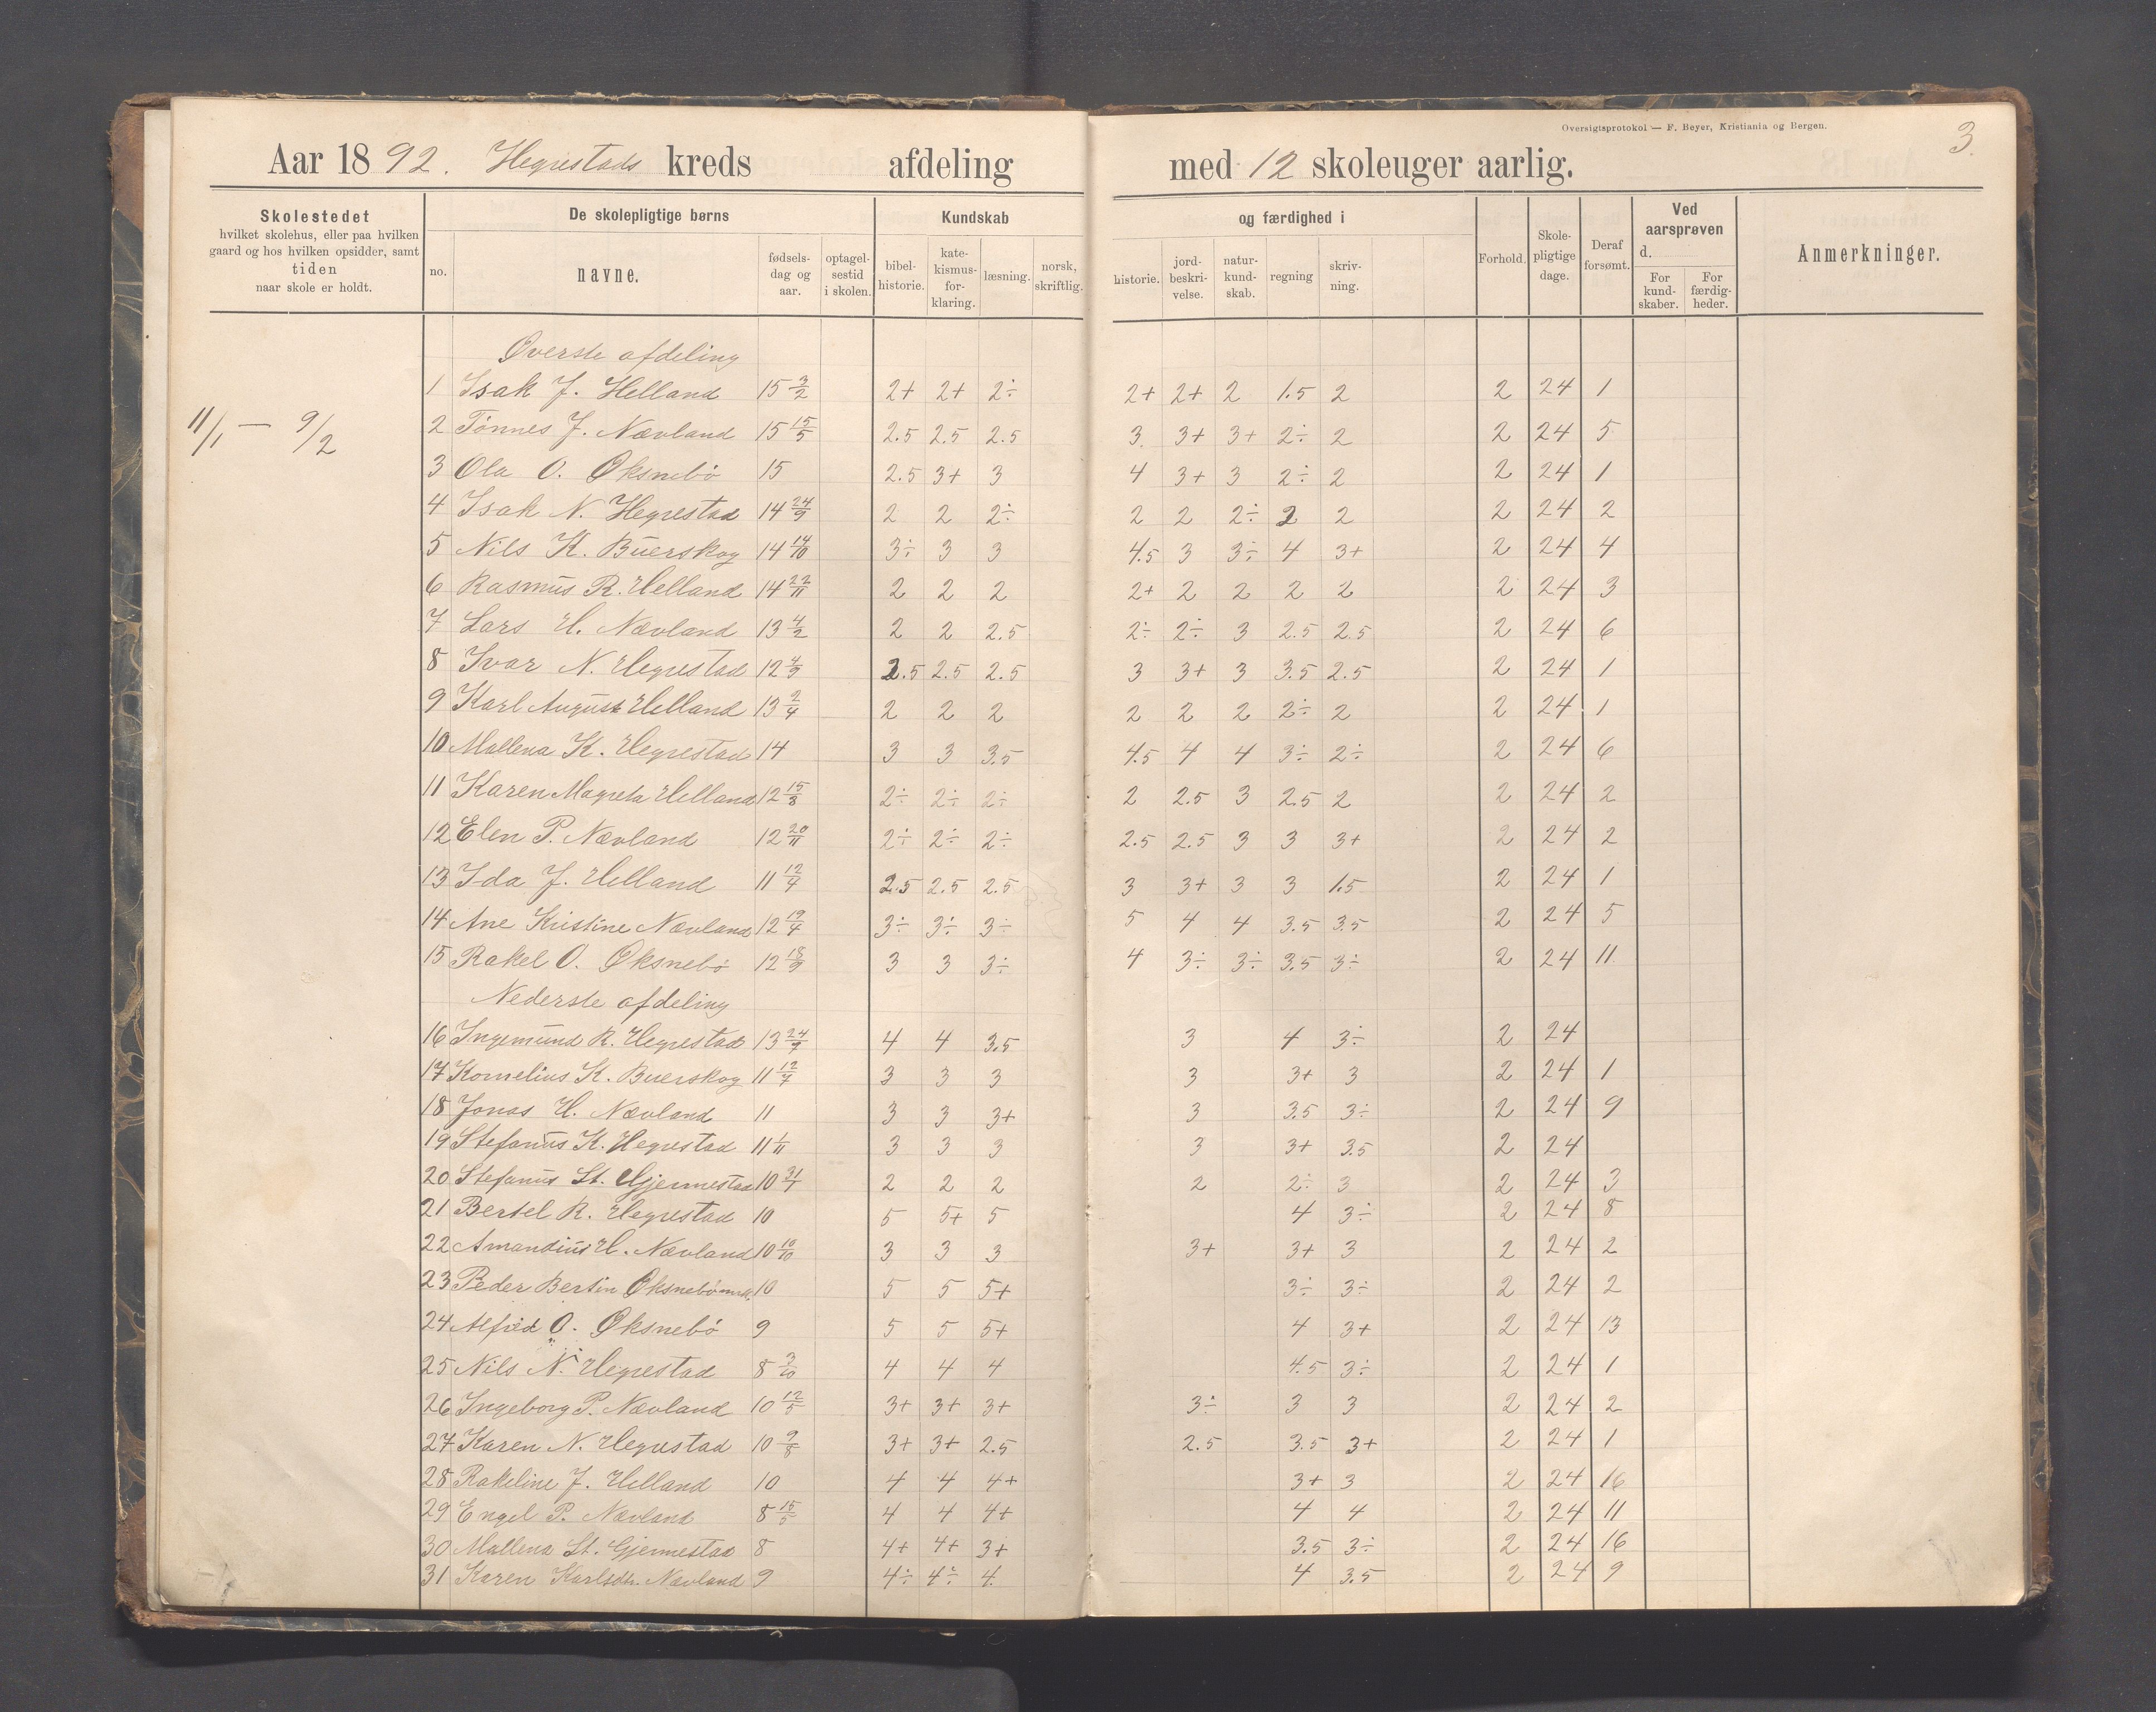 Oversigtsprotokol — F. Beyer, Kristiania og Bergen.
3.
Aar 1892. Hegrestads kreds afdeling med 12 skoleuger aarlig.
Skolestedet hvilket skolehus, eller paa hvilken gaard og hos hvilken opsidder, samt tiden naar skole er holdt.
De skolepligtige børns
no. navne. fødsels-dag og aar. optagel-sestid i skolen.
Kundskab og færdighed i
bibel-historie. kate-kismus-for-klaring. læsning. norsk, skriftlig. historie. jord-beskri-velse. natur-kund-skab. regning skriv-ning.
Forhold. Skole-pligtige dage. Deraf forsømt. Ved aarsprøven d. For kund-skaber. For færdig-heder. Anmerkninger.
Øverste afdeling
1 Isak J. Helland 15 3/2 2+ 2+ 2÷ 2+ 2+ 2 1.5 2 2 24 1
11/1 — 9/2
2 Tønnes J. Nævland 15 15/5 2.5 2.5 2.5 3 3+ 3+ 2÷ 2 2 24 5
3 Ola O. Øksnebø 15 2.5 3+ 3 4 3+ 3 2÷ 2 2 24 1
4 Isak N. Hegrestad 14 24/9 2 2 2÷ 2 2 2÷ 2 2 2 24 2
5 Nils K. Buerskog 14 14/10 3÷ 3 3 4.5 3 3÷ 4 3+ 2 24 4
6 Rasmus R. Helland 14 22/11 2 2 2 2+ 2 2 2 2 2 24 3
7 Lars H. Nævland 13 4/2 2 2 2.5 2÷ 2÷ 3 2.5 2.5 2 24 6
8 Ivar N. Hegrestad 12 4/9 2.5 2.5 2.5 3 3+ 3 3.5 2.5 2 24 1
9 Karl August Helland 13 2/4 2 2 2 2 2 2 2÷ 2 2 24 1
10 Mallena K. Hegrestad 14 3 3 3.5 4.5 4 4 3÷ 2÷ 2 24 6
11 Karen Magreta Helland 12 15/8 2÷ 2÷ 2÷ 2 2.5 3 2.5 2 2 24 2
12 Elen P. Nævland 12 20/11 2÷ 2÷ 2÷ 2.5 2.5 3 3 3+ 2 24 2
13 Ida J. Helland 11 12/4 2.5 2.5 2.5 3 3+ 3 3 1.5 2 24 1
14 Ane Kristine Nævland 12 19/4 3÷ 3÷ 3÷ 5 4 4 3.5 3.5 2 24 5
15 Rakel O. Øksnebø 12 18/9 3 3 3÷ 4 3÷ 3÷ 3.5 3÷ 2 24 11
Nederste afdeling
16 Ingemund R. Hegrestad 13 24/7 4 4 3.5 3 4 3÷ 2 24
17 Kornelius K. Buerskog 11 12/7 3 3 3 3 3+ 3 2 24 1
18 Jonas H. Nævland 11 3 3 3+ 3 3.5 3÷ 2 24 9
19 Stefanus K. Hegrestad 11 1/11 3 3 3 3 3+ 3.5 2 24
20 Stefanus St. Gjermestad 10 31/1 2 2 2 2 2÷ 3 2 24 3
21 Bertel R. Hegrestad 10 5 5+ 5 4 3÷ 2 24 8
22 Amandius H. Nævland 10 10/10 3 3 3 3+ 3+ 3 2 24 2
23 Peder Bertin Øksnebø 10 5 5 5+ 3÷ 3÷ 2 24 2
24 Alfred O. Øksnebø 9 5 5 5+ 4 3+ 2 24 13
25 Nils N. Hegrestad 8 3/10 4 4 4 4.5 3÷ 2 24 1
26 Ingeborg P. Nævland 10 12/5 3+ 3+ 3+ 3÷ 3 3 2 24 2
27 Karen N. Hegrestad 10 9/8 3+ 3+ 2.5 2.5 3.5 3+ 2 24 1
28 Rakeline J. Helland 10 4 4 4+ 3+ 3 2 24 16
29 Engel P. Nævland 8 15/5 4 4 4+ 4 4 2 24 11
30 Mallena St. Gjermestad 8 4+ 4+ 3+ 3.5 3÷ 2 24 16
31 Karen Karlsdtr. Nævland 9 4÷ 4÷ 4. 4 3.5 2 24 9